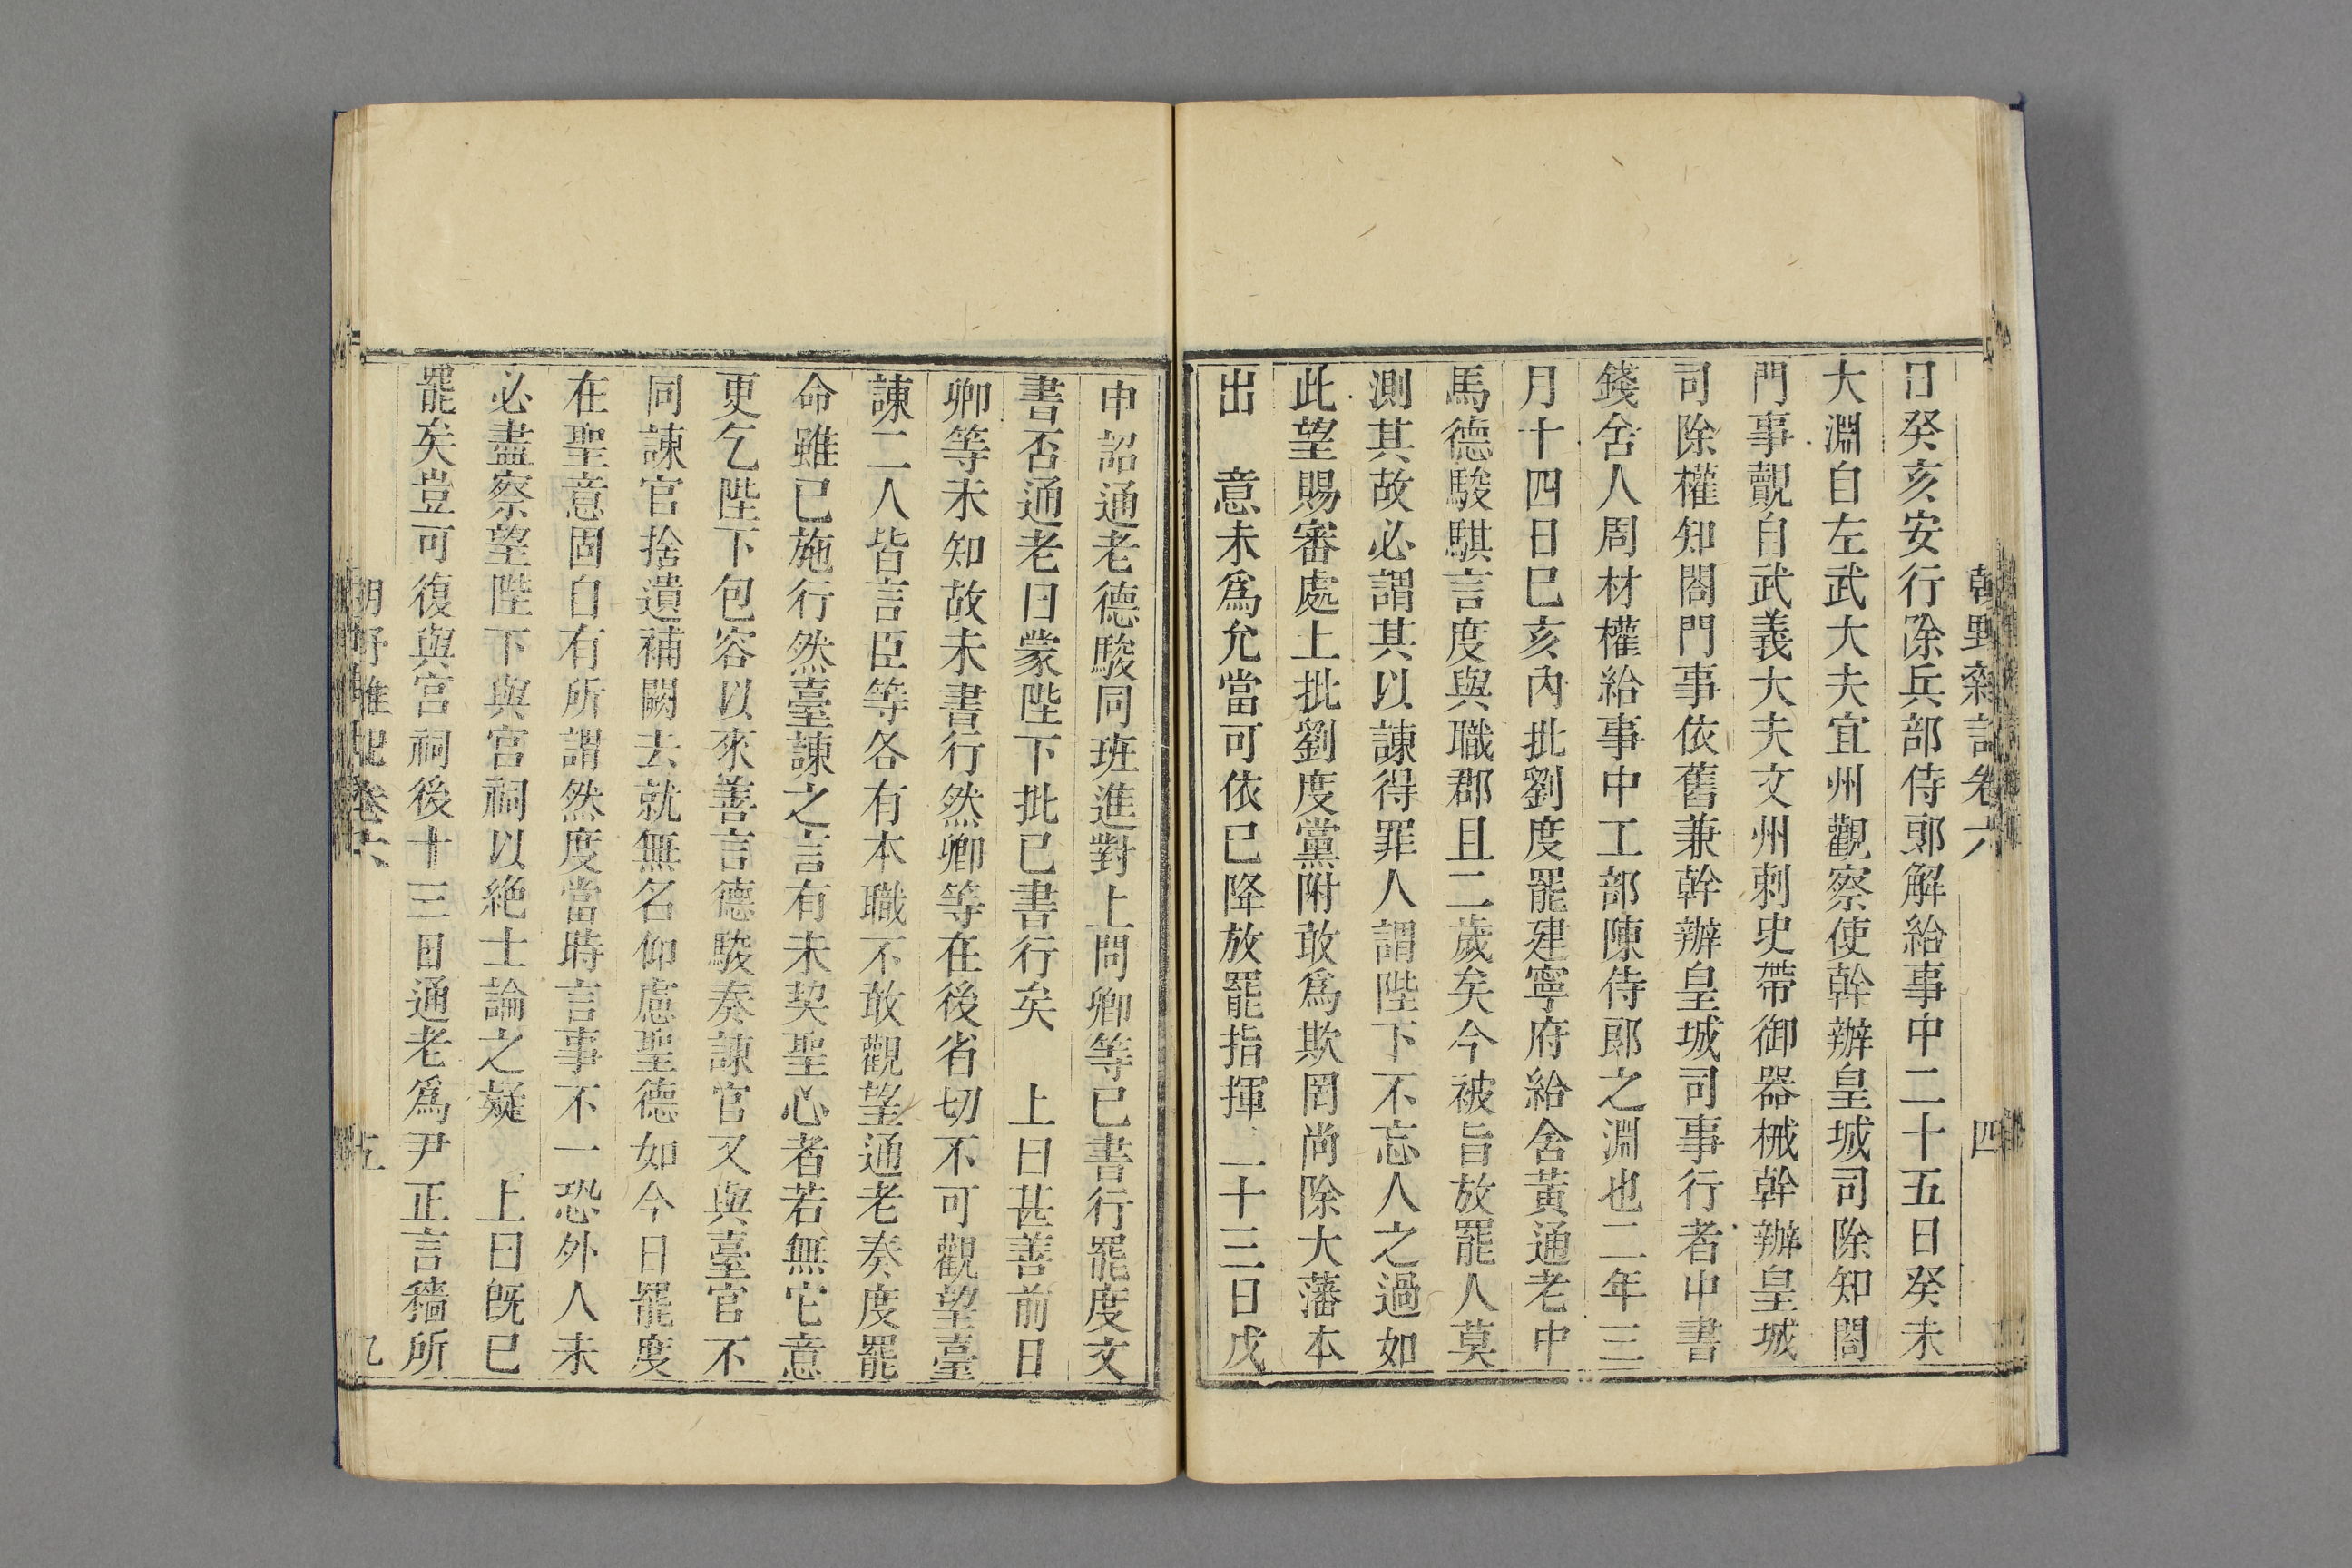 朝野雜記卷六 四
日癸亥安行除兵部侍郎解給事中二十五日癸未
大淵自左武大夫宜州觀察使幹辦皇城司除知閤
門事覿自武義大夫文州刺史帶御器械幹辦皇城
司除權知閤門事依舊兼幹辦皇城司事行者中書
錢舍人周材權給事中工部陳侍郎之淵也二年三
月十四日巳亥內批劉度罷建寧府給舍黃通老中
馬德駿騏言度與職郡且二歲矣今被旨放罷人莫
測其故必謂其以諫得罪人謂陛下不忘人之過如
此望賜審處上批劉度黨附敢爲欺罔尚除大藩本
出 意未爲允當可依已降放罷指揮二十三日戊
申詔通老德駿同班進對上問卿等已書行罷度文
書否通老曰蒙陛下批已書行矣 上曰甚善前日
卿等未知故未書行然卿等在後省切不可觀望臺
諫二人皆言臣等各有本職不敢觀望通老奏度罷
命雖已施行然臺諫之言有未契聖心者若無它意
更乞陛下包容以來善言德駿奏諫官又與臺官不
同諫官捨遺補闕去就無名仰慮聖德如今日罷度
在聖意固自有所謂然度當時言事不一恐外人未
必盡察望陛下與宮祠以絶士論之疑 上曰旣已
罷矣豈可復與宮祠後十三日通老爲尹正言穡所
朝野雜記卷六 五